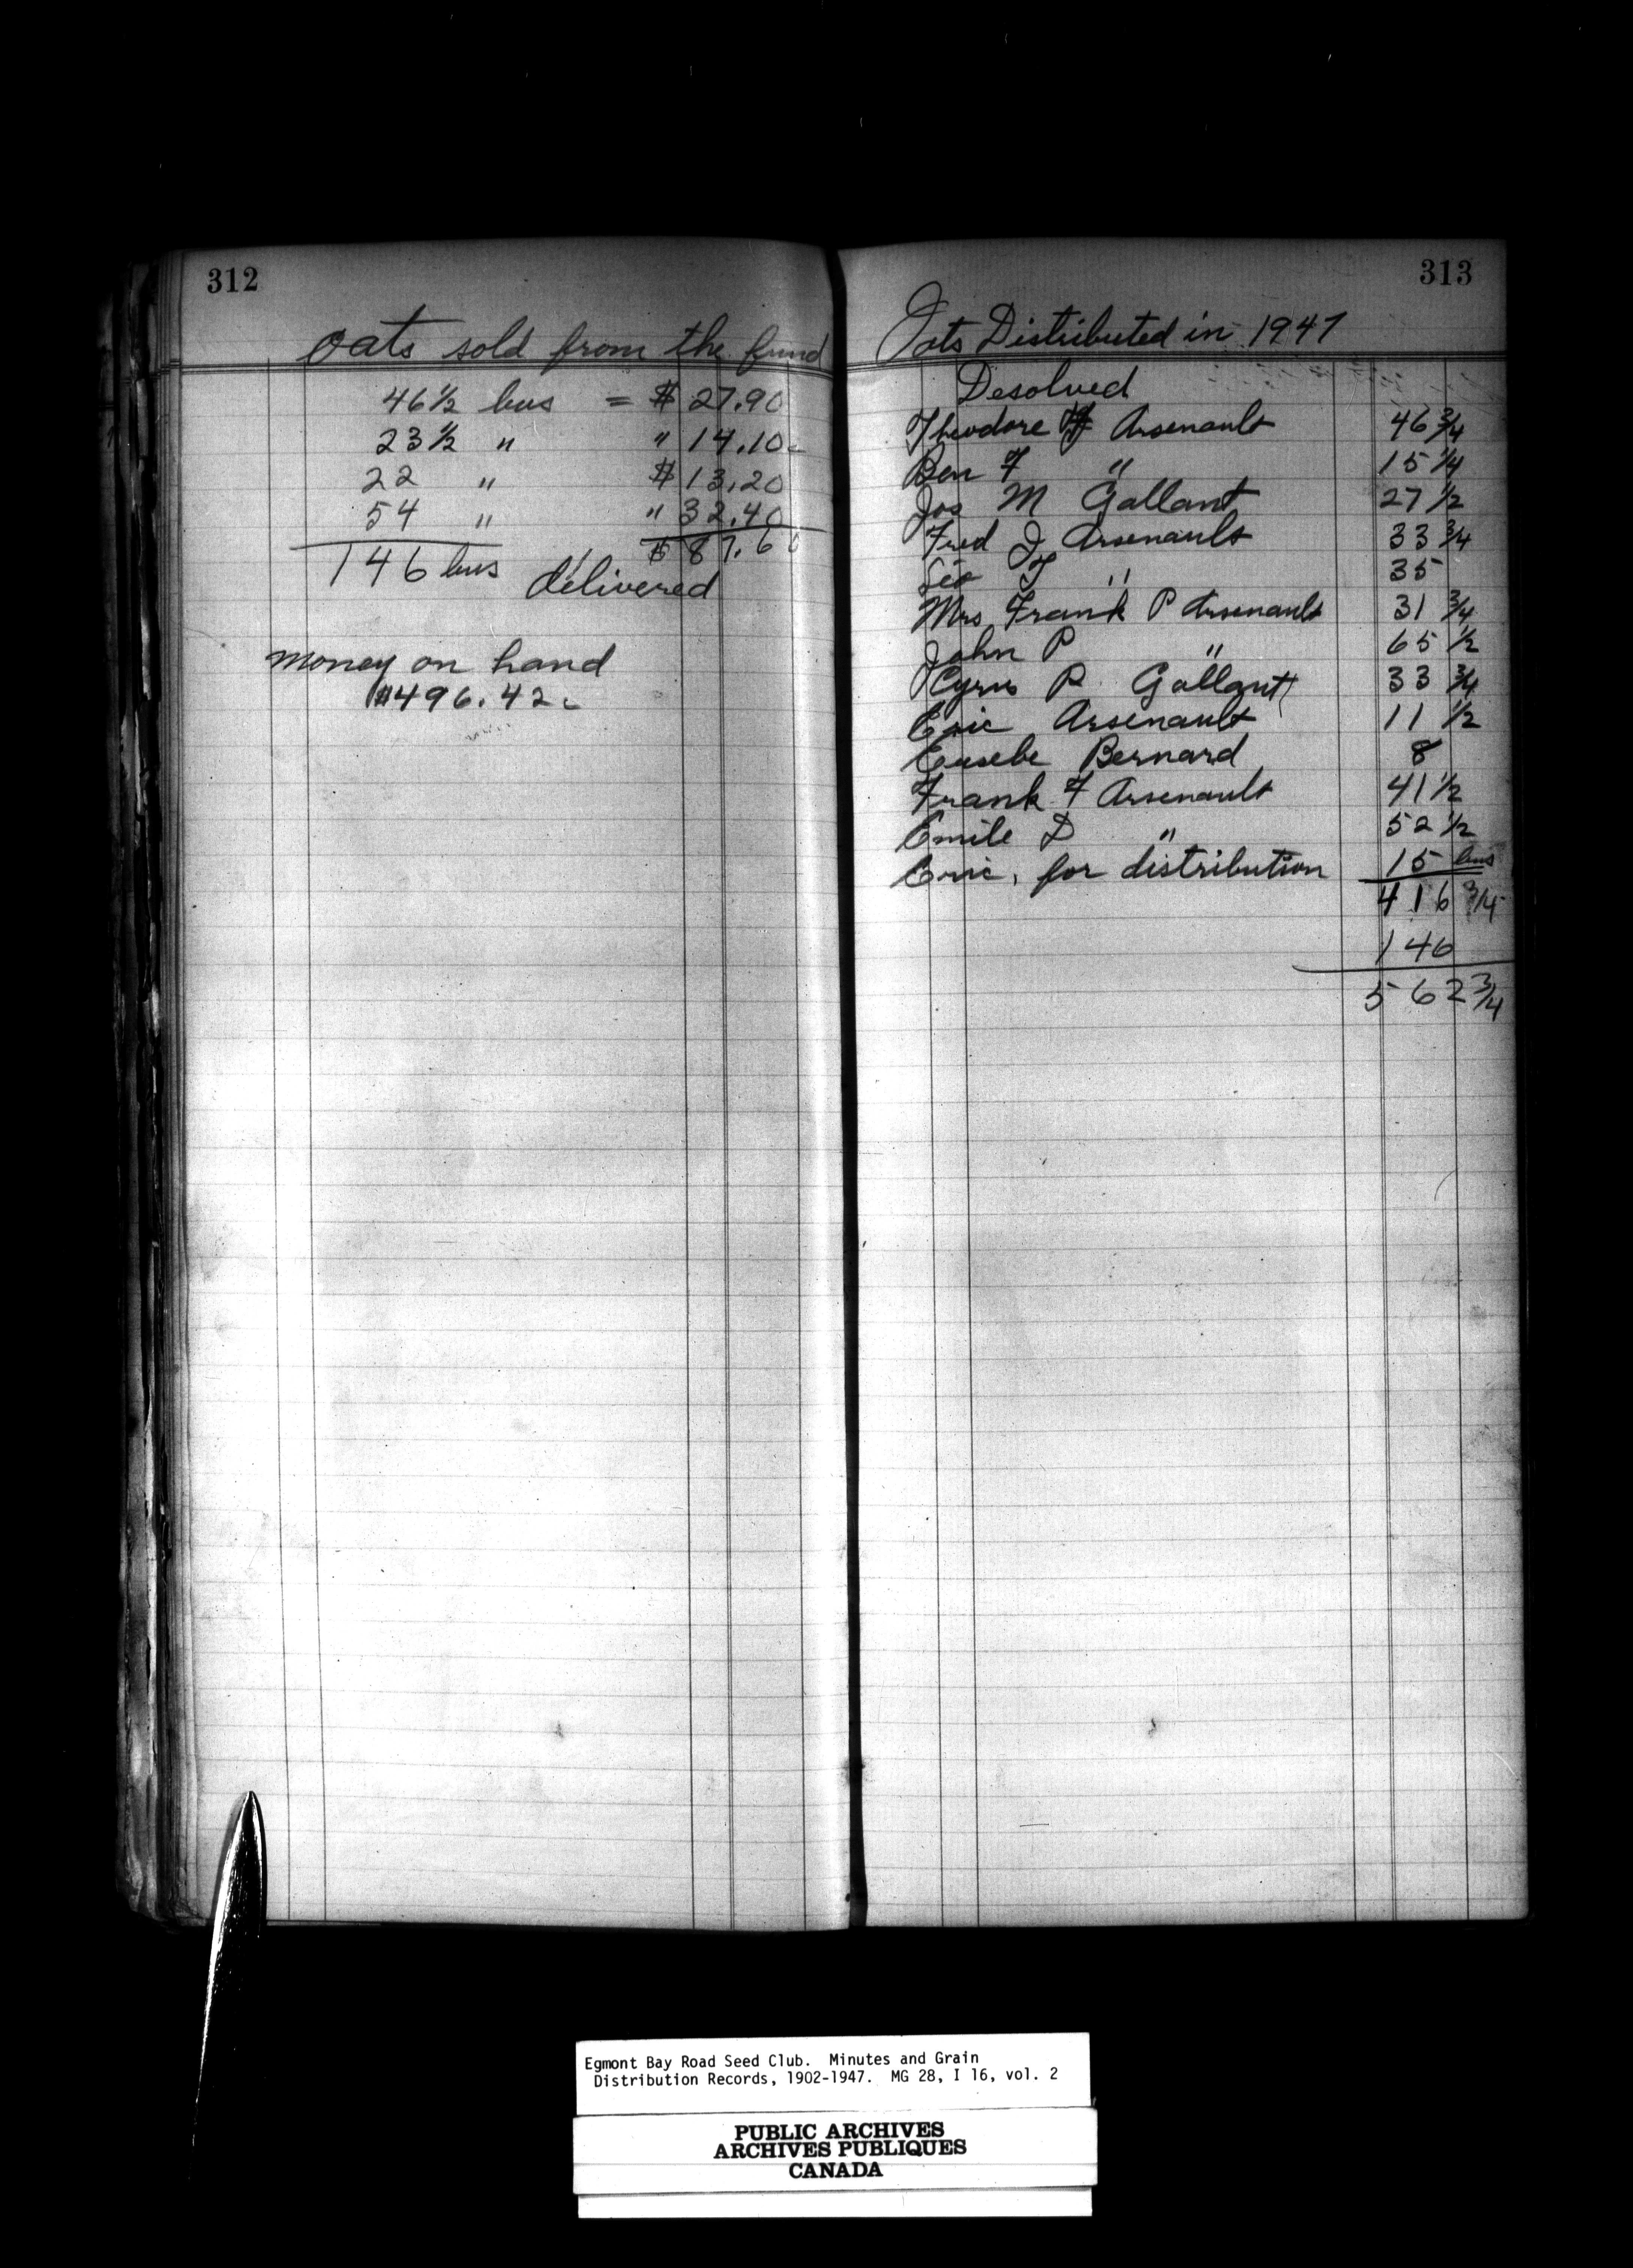 312
oats sold from the fund
46 ½ bus = $ 27.90
23 ½ " " 14.10c
22 " $ 13.20
54 " " 32.40
146 bus $ 87.60
delivered
money on hand
$496.42c
313
Oats Distributed in 1947
Desolved
Theodore F Arsenault 46 ¾
Ben F " 15 ¼
Jos M Gallant 27 ½
Fred J Arsenault 33 ¾
Léo T " 35
Mrs Frank P Arsenault 31 ¾
John P " 65 ½
Cyrus P Gallant 33 ¾
Eric Arsenault 11 ½
Eusebe Bernard 8
Frank F Arsenault 41 ½
Emile D " 52 ½
Eric, for distribution 15 bus
416 ¾
146
562 ¾
Egmont Bay Road Seed Club. Minutes and Grain
Distribution Records, 1902-1947. MG 28, I 16, vol. 2
PUBLIC ARCHIVES
ARCHIVES PUBLIQUES
CANADA